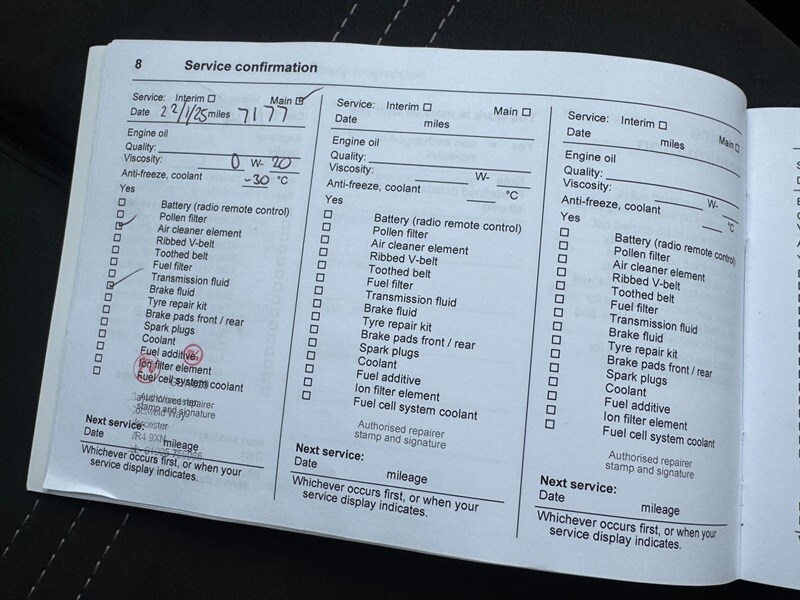 8 Service confirmation
Service: Interim Main
Date 22/1/25 miles 7177
Engine oil
Quality:
Viscosity: 0 W- 20
Anti-freeze, coolant -30 °C
Yes
Battery (radio remote control)
Pollen filter
Air cleaner element
Ribbed V-belt
Toothed belt
Fuel filter
Transmission fluid
Brake fluid
Tyre repair kit
Brake pads front / rear
Spark plugs
Coolant
Fuel additive
Ion filter element
Fuel cell system coolant
Authorised repairer
stamp and signature
WR4 9XN
Next service:
Date mileage
Whichever occurs first, or when your
service display indicates.
Service: Interim Main
Date miles
Engine oil
Quality:
Viscosity: W-
Anti-freeze, coolant °C
Yes
Battery (radio remote control)
Pollen filter
Air cleaner element
Ribbed V-belt
Toothed belt
Fuel filter
Transmission fluid
Brake fluid
Tyre repair kit
Brake pads front / rear
Spark plugs
Coolant
Fuel additive
Ion filter element
Fuel cell system coolant
Authorised repairer
stamp and signature
Next service:
Date mileage
Whichever occurs first, or when your
service display indicates.
Service: Interim Main
Date miles
Engine oil
Quality:
Viscosity: W-
Anti-freeze, coolant °C
Yes
Battery (radio remote control)
Pollen filter
Air cleaner element
Ribbed V-belt
Toothed belt
Fuel filter
Transmission fluid
Brake fluid
Tyre repair kit
Brake pads front / rear
Spark plugs
Coolant
Fuel additive
Ion filter element
Fuel cell system coolant
Authorised repairer
stamp and signature
Next service:
Date mileage
Whichever occurs first, or when your
service display indicates.